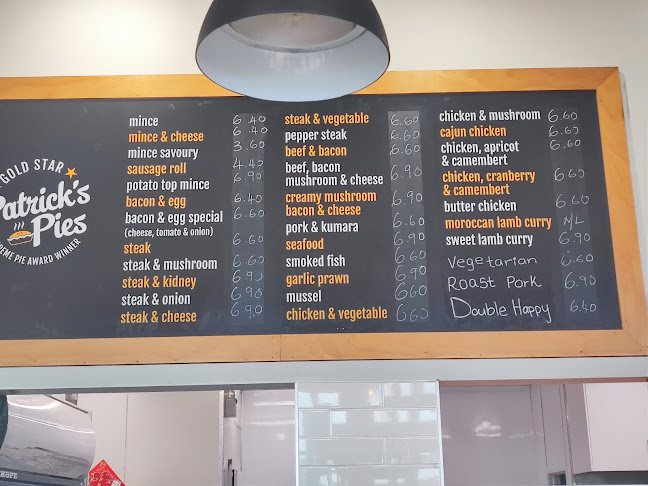 GOLD STAR
Patrick's
Pies
REME PIE AWARD WINNER
mince 6.40
mince & cheese 6.40
mince savoury 3.60
sausage roll 4.40
potato top mince 6.90
bacon & egg 6.40
bacon & egg special 6.60
(cheese, tomato & onion)
steak 6.60
steak & mushroom 6.60
steak & kidney 6.90
steak & onion 6.90
steak & cheese 6.90
steak & vegetable 6.60
pepper steak 6.60
beef & bacon 6.60
beef, bacon
mushroom & cheese 6.90
creamy mushroom 6.90
bacon & cheese
pork & kumara 6.60
seafood 6.90
smoked fish 6.90
garlic prawn 6.90
mussel 6.60
chicken & vegetable 6.60
chicken & mushroom 6.60
cajun chicken 6.60
chicken, apricot 6.60
& camembert
chicken, cranberry
& camembert
butter chicken 6.60
moroccan lamb curry
sweet lamb curry 6.90
Vegetarian 6.60
Roast Pork 6.90
Double Happy 6.40